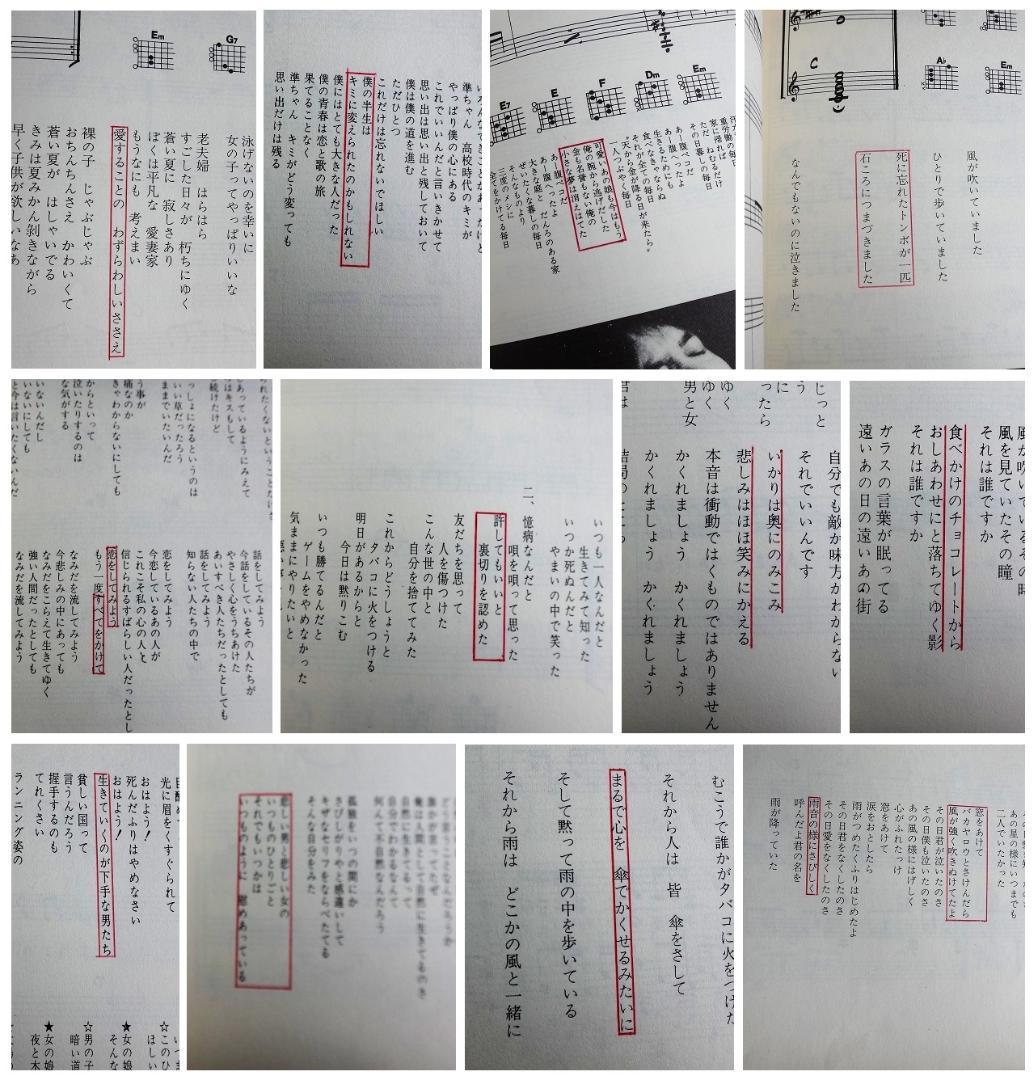 Em
G7
泳げないのを幸いに
女の子ってやっぱりいいな
老夫婦 はらはら
すごした日々が 朽ちにゆく
蒼い夏に 寂しさあり
ぼくは平凡な 愛妻家
もうなにも 考えまい
愛することの わずらわしいささえ
裸の子 じゃぶじゃぶ
おちんちんさえ かわいくて
蒼い夏が はしゃいでる
きみは夏みかん剝きながら
早く子供が欲しいなあ
準ちゃん 高校時代のキミが
やっぱり僕の心にある
これでいいんだと言いきかせて
思い出は思い出と残しておいて
僕は僕の道を進む
ただひとつ
これだけは忘れないでほしい
僕の半生は
キミに変えられたのかもしれない
僕にはとても大きな人だった
僕の青春は恋と歌の旅
果てることなく
準ちゃん キミがどう変っても
思い出だけは残る
E7
E
F
Dm
Em
重労働の毎日
家に帰れば
ただ ねむるだけ
その日暮しの毎日
あー腹へったよ
あー腹へったよ
生きるためにも
食べなきゃならぬ
それが全ての毎日
"天から金が降る日が来たら"
一人つぶやく毎日
可愛いあの娘も今はもう
俺の腕から逃げだした
金も名誉もない俺の
小さな夢は消えはてた
あー腹ペコだ
あー腹へったよ
大きな庭と だんろのある家
ぜいたくな暮しの毎日
そんなものより
三度のメシに
C
A♭
Em
風が吹いていました
ひとりで歩いていました
死に忘れたトンボが一匹
石ころにつまづきました
なんでもないのに泣きました
話をしてみよう
今話をしているその人たちが
やさしく心をうちあけた
あいすべき人たちだったとしても
話をしてみよう
知らない人たちの中で
恋をしてみよう
今恋しているあの人が
これこそ私の心の人と
信じられるすばらしい人だったとし
恋をしてみよう
もう一度すべてをかけて
なみだを流してみよう
今悲しみの中にあっても
なみだをこらえて生きてゆく
強い人間だったとしても
なみだを流してみよう
いつも一人なんだと
生きてみて知った
いつか死ぬんだと
やまいの中で笑った
二、憶病なんだと
唄を唄って思った
許してもいいと
裏切りを認めた
友だちを思って
人を傷つけた
こんな世の中と
自分を捨ててみた
これからどうしようと
タバコに火をつける
明日があるからと
今日は黙りこむ
いつも勝てるんだと
ゲームをやめなかった
気ままにやりたいと
じっと
う
に
ったら
ゆく
ゆく
男と女
自分でも敵か味方かわからない
それでいいんです
いかりは奥にのみこみ
悲しみはほほ笑みにかえる
本音は衝動ではくものではありません
かくれましょう かくれましょう
かくれましょう かくれましょう
風を見ていたその瞳
それは誰ですか
食べかけのチョコレートから
おしあわせにと落ちてゆく影
それは誰ですか
ガラスの言葉が眠ってる
遠いあの日の遠いあの街
光に眉をくすぐられて
おはよう!
死んだふりはやめなさい
おはよう!
生きていくのが下手な男たち
貧しい国って
言うんだろう
握手するのも
てれくさい
ランニング姿の
☆このひ
ほしい
★女の娘
そんな
☆男の子
暗い道
★女の娘
夜と木
孤独をいつの間にか
さびしがりやと感違いして
キザなセリフをならべたてる
そんな自分をみた
悲しい男と悲しい女の
いつものひとりごと
それでもいつかは
いつものように 慰めあっている
むこうで誰かがタバコに火をつけた
それから人は 皆 傘をさして
まるで心を 傘でかくせるみたいに
そして黙って雨の中を歩いている
それから雨は どこかの風と一緒に
あの星の様にいつまでも
二人でいたかった
窓をあけて
バカヤロウとさけんだら
風が強く吹きぬけてたよ
その日君が泣いたのさ
その日僕も泣いたのさ
あの風の様にはげしく
心がふれたっけ
窓をあけて
涙をおとしたら
雨がつめたくふりはじめたよ
その日君をなくしたのさ
その日愛をなくしたのさ
雨音の様にさびしく
呼んだよ君の名を
雨が降っていた